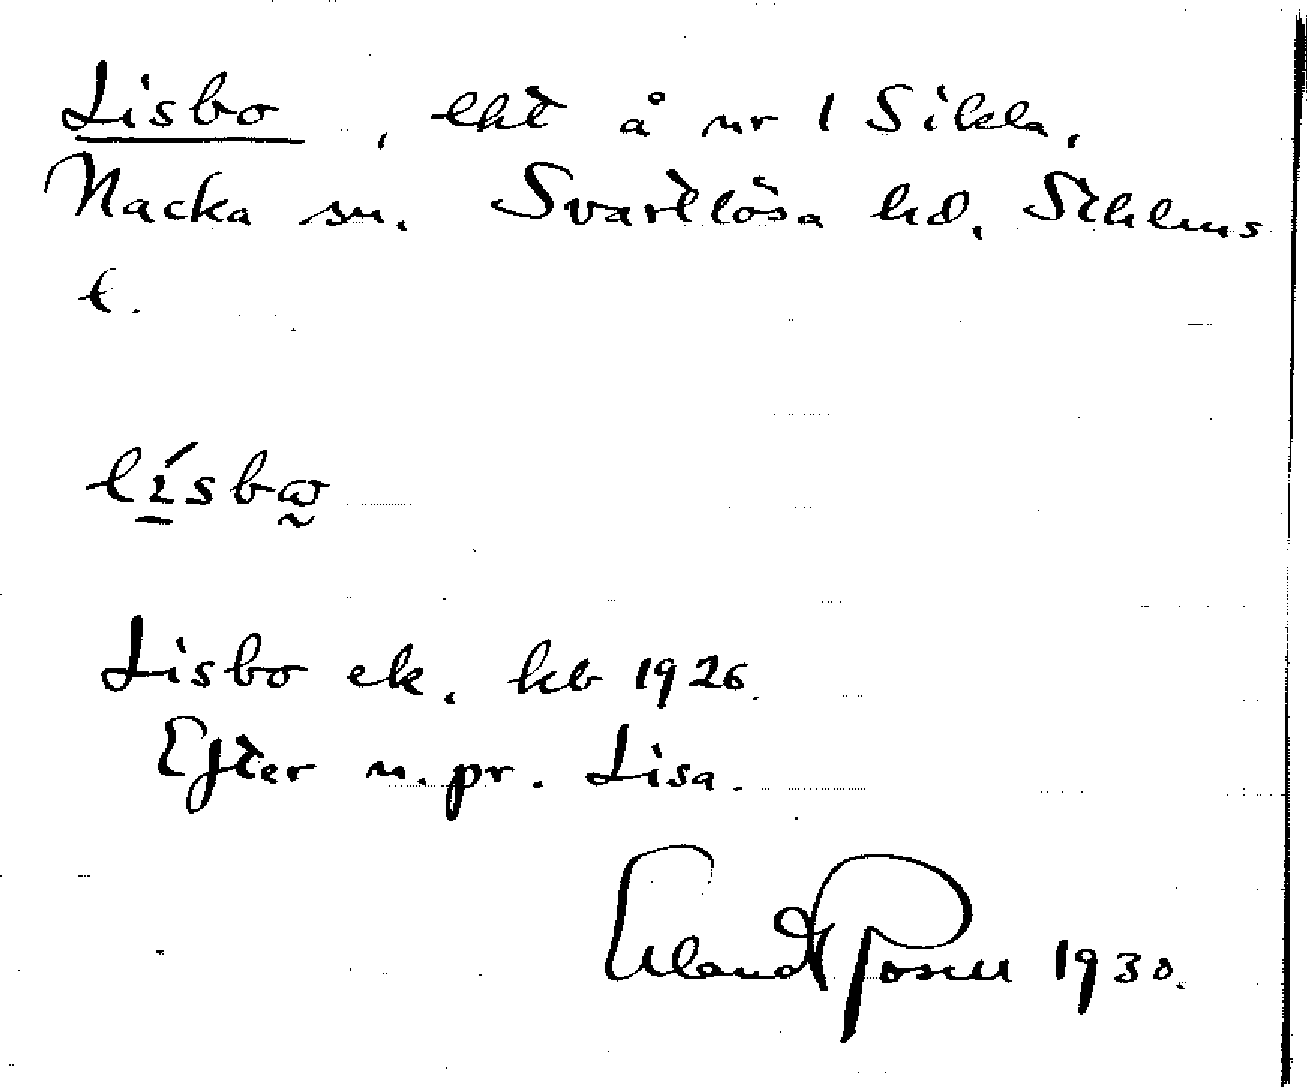 Lisbo, lht å nr 1 Sikla,
Nacka sn. Svartlösa hd, Sthlms
l.
lísbω
Lisbo ek. kb 1926.
Efter n. pr. Lisa.
Erland Rosell 1930.